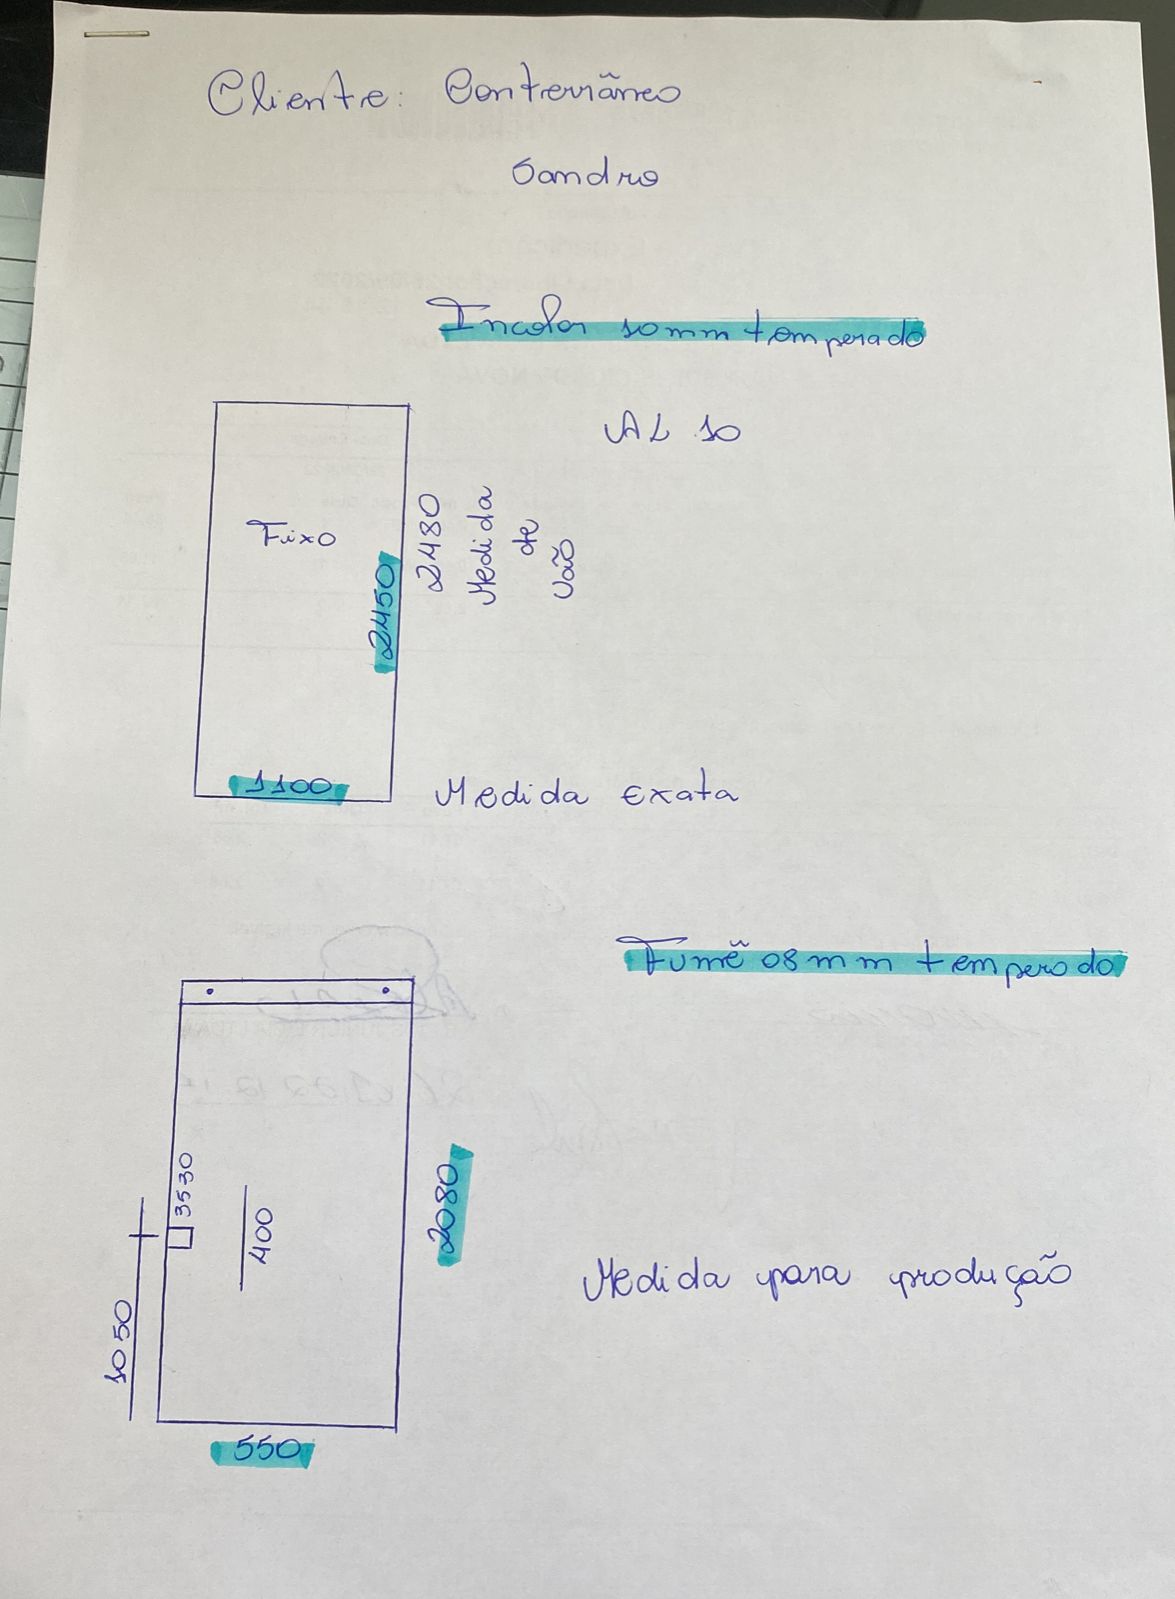 Cliente: Conterrâneo
Sandro
Incolor 10mm temperado
AL 10
Fixo
2450
2480
Medida
de
Vão
1100
Medida Exata
Fumê 08mm temperado
3530
400
1050
2080
Medida para produção
550